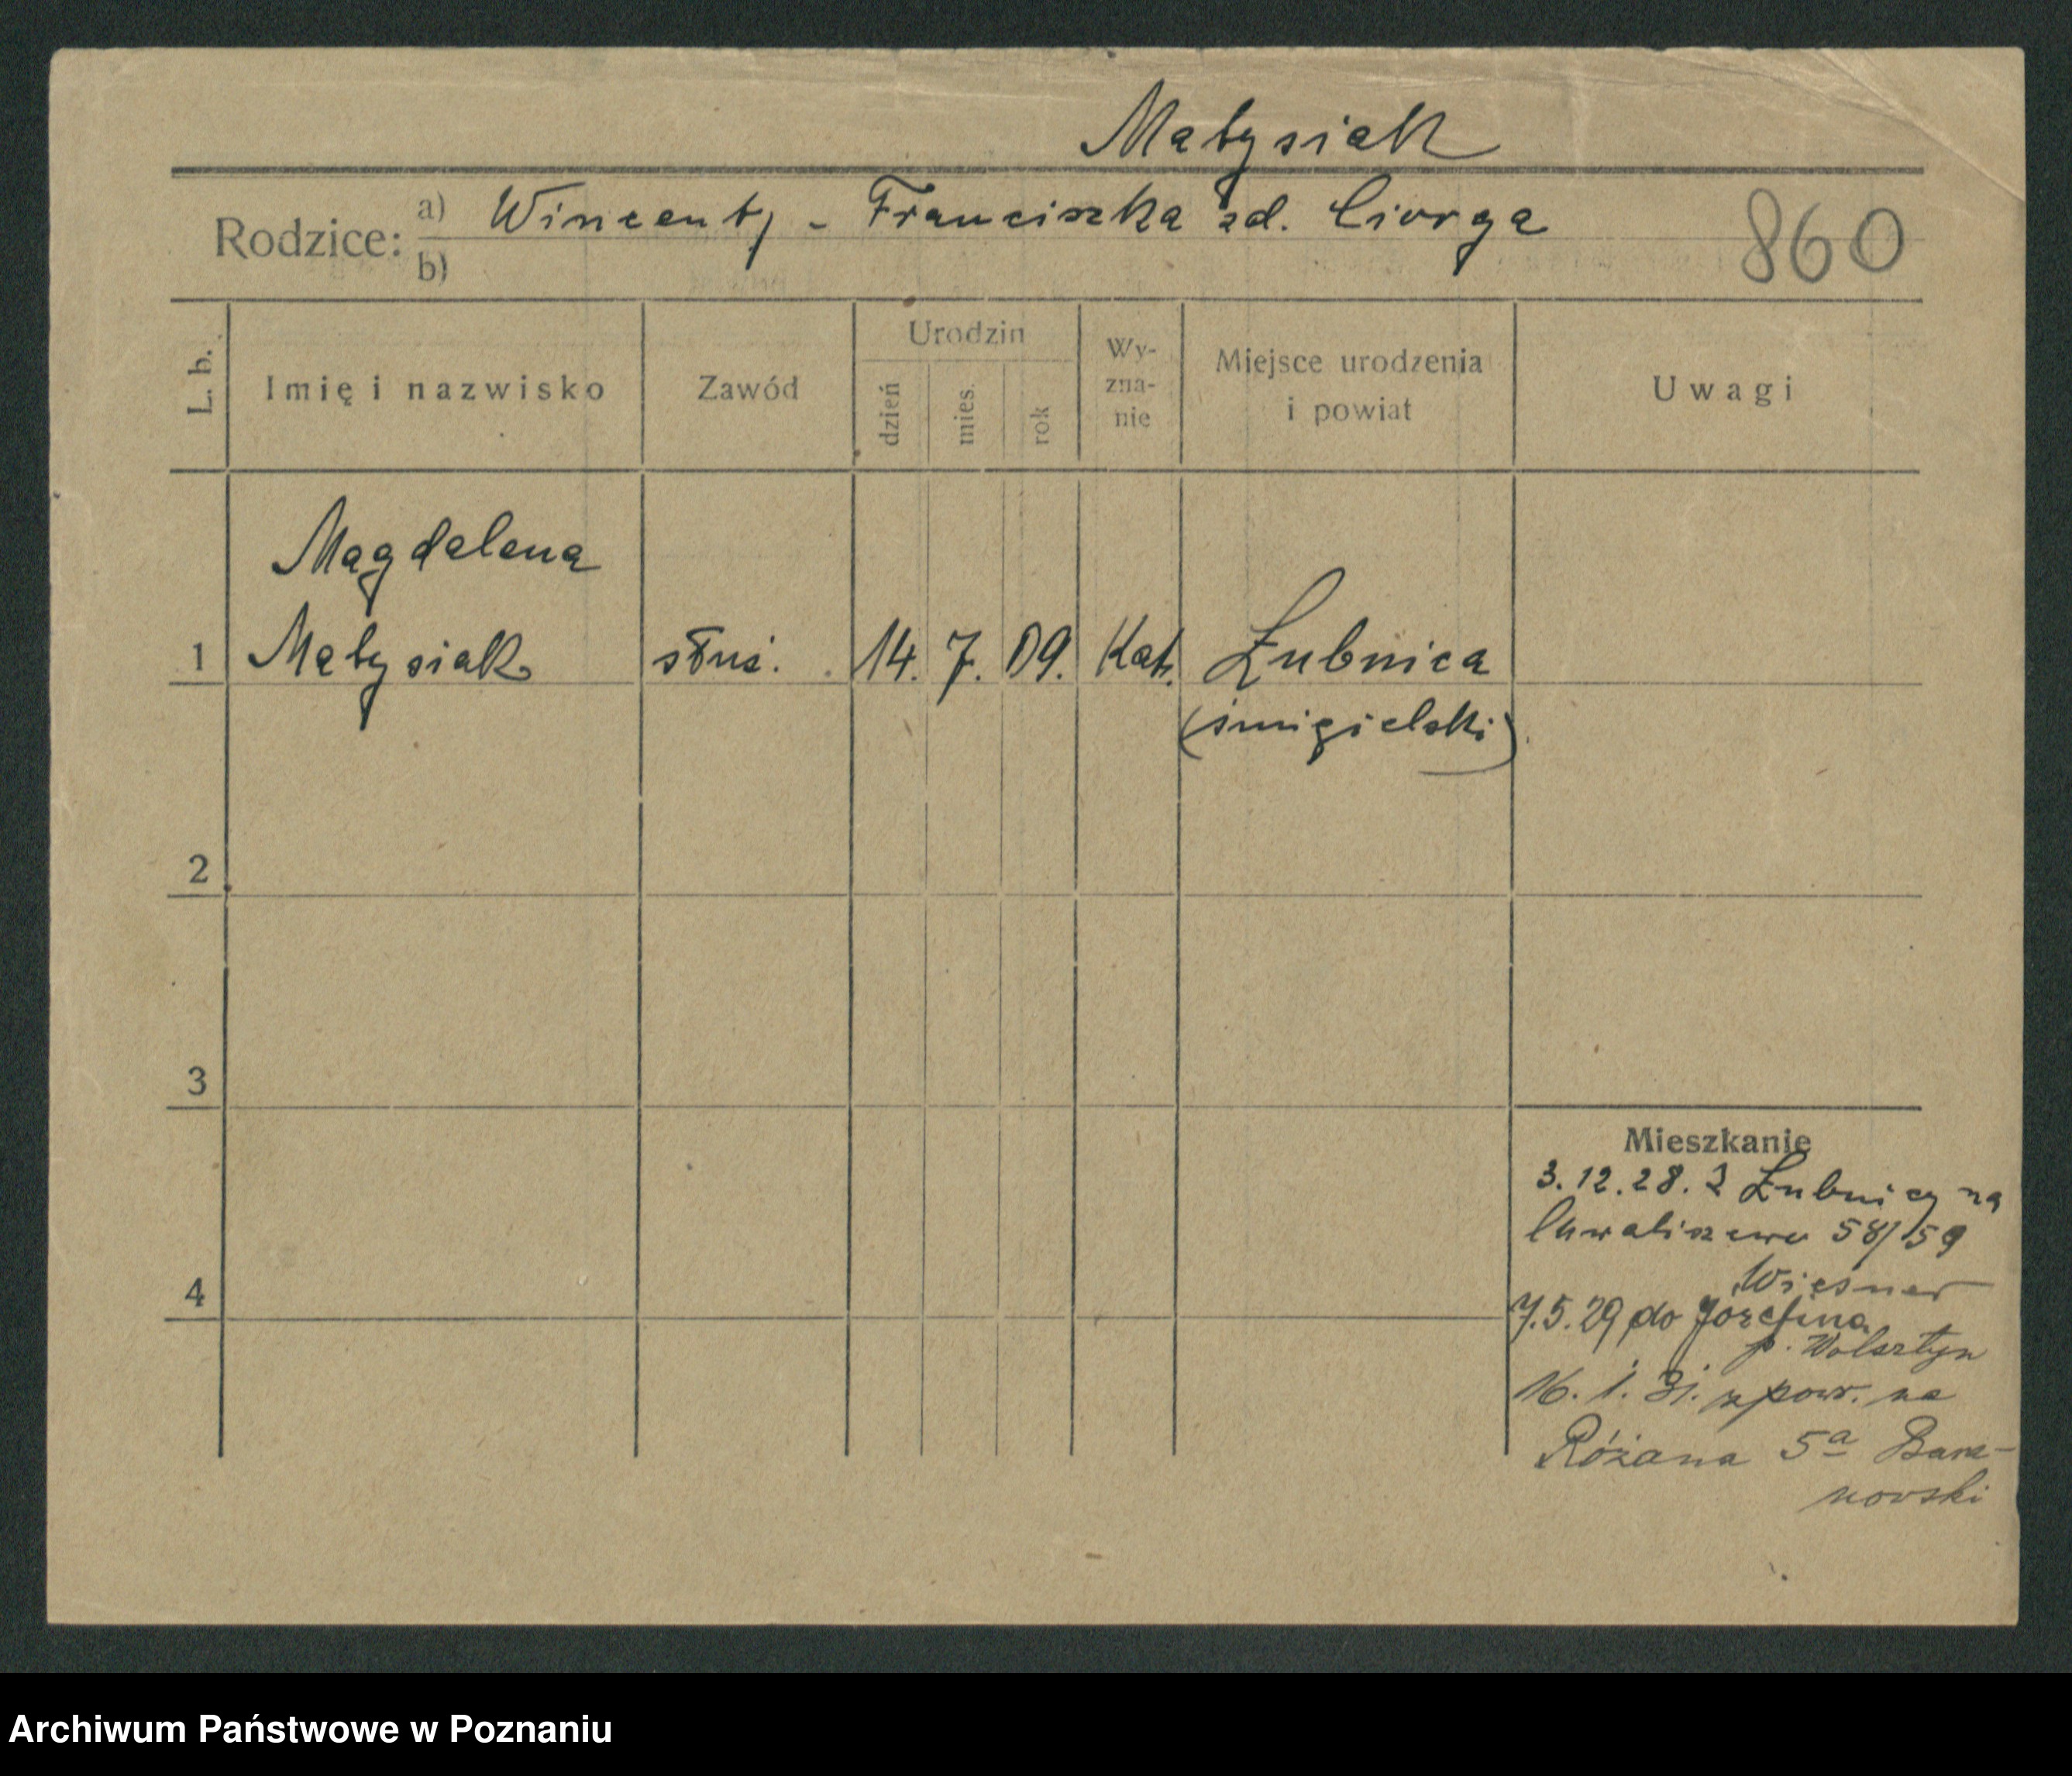 Matysiak
Rodzice: a) Wincenty - Franciszka zd. Ciorga
b)
860
L. b.
Imię i nazwisko
Zawód
Urodzin
dzień
mies.
rok
Wy-
zna-
nie
Miejsce urodzenia
i powiat
Uwagi
Magdalena
1 Matysiak służ. 14. 7. 09. Kat. Łubnica
(śmigielski)
2
3
4
Mieszkanie
3.12.28. z Łubnicy na
Chwaliszewo 58/59
Wiesner
7.5.29 do Józefina
p. Wolsztyn
16. 1. 31. z pow. na
Różana 5a Bara-
nowski
Archiwum Państwowe w Poznaniu